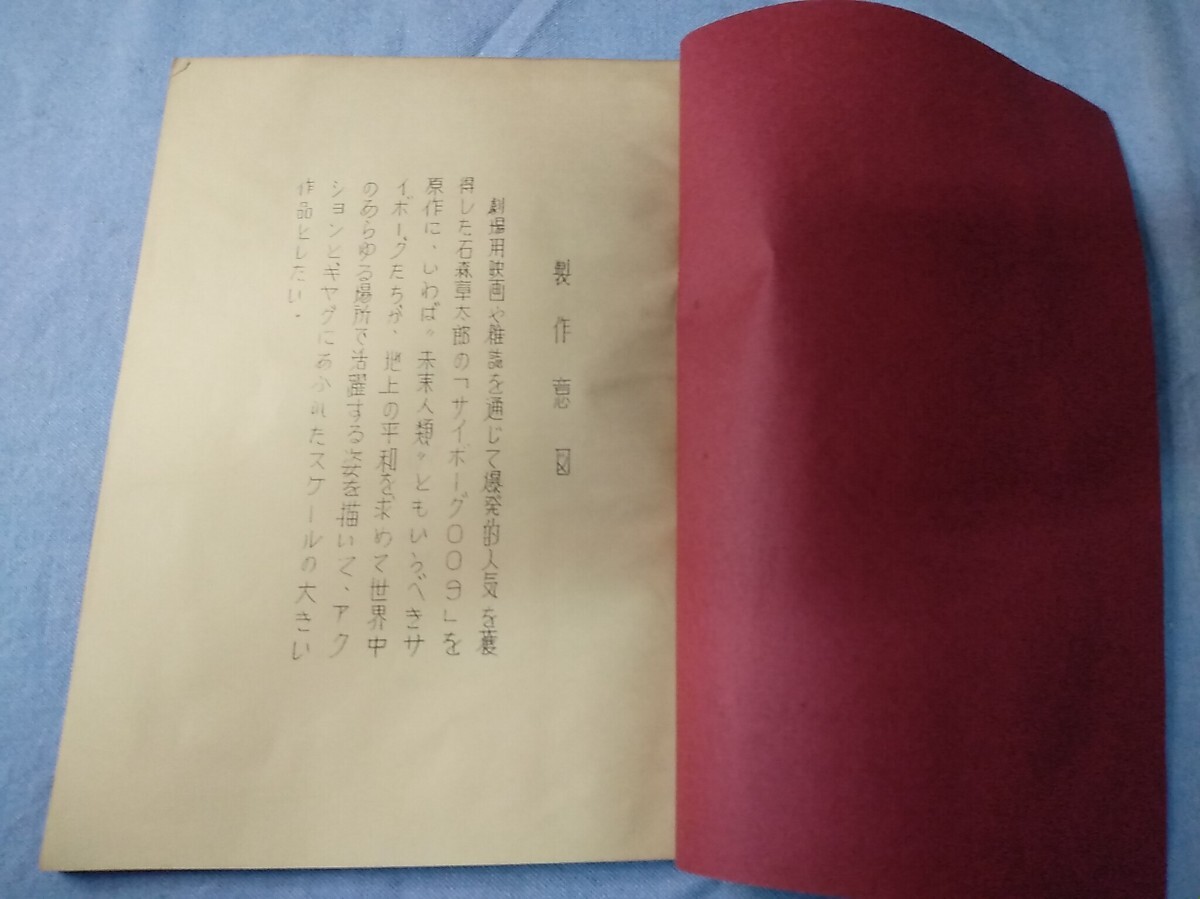 製作意図
劇場用映画や雑誌を通じて爆発的人気を獲
得した石森章太郎の「サイボーグ009」を
原作に、いわば〃未来人類〃ともいうべきサ
イボーグたちが、地上の平和を求めて世界中
のあらゆる場所で活躍する姿を描いて、アク
ションと、ギヤグにあふれたスケールの大きい
作品としたい。